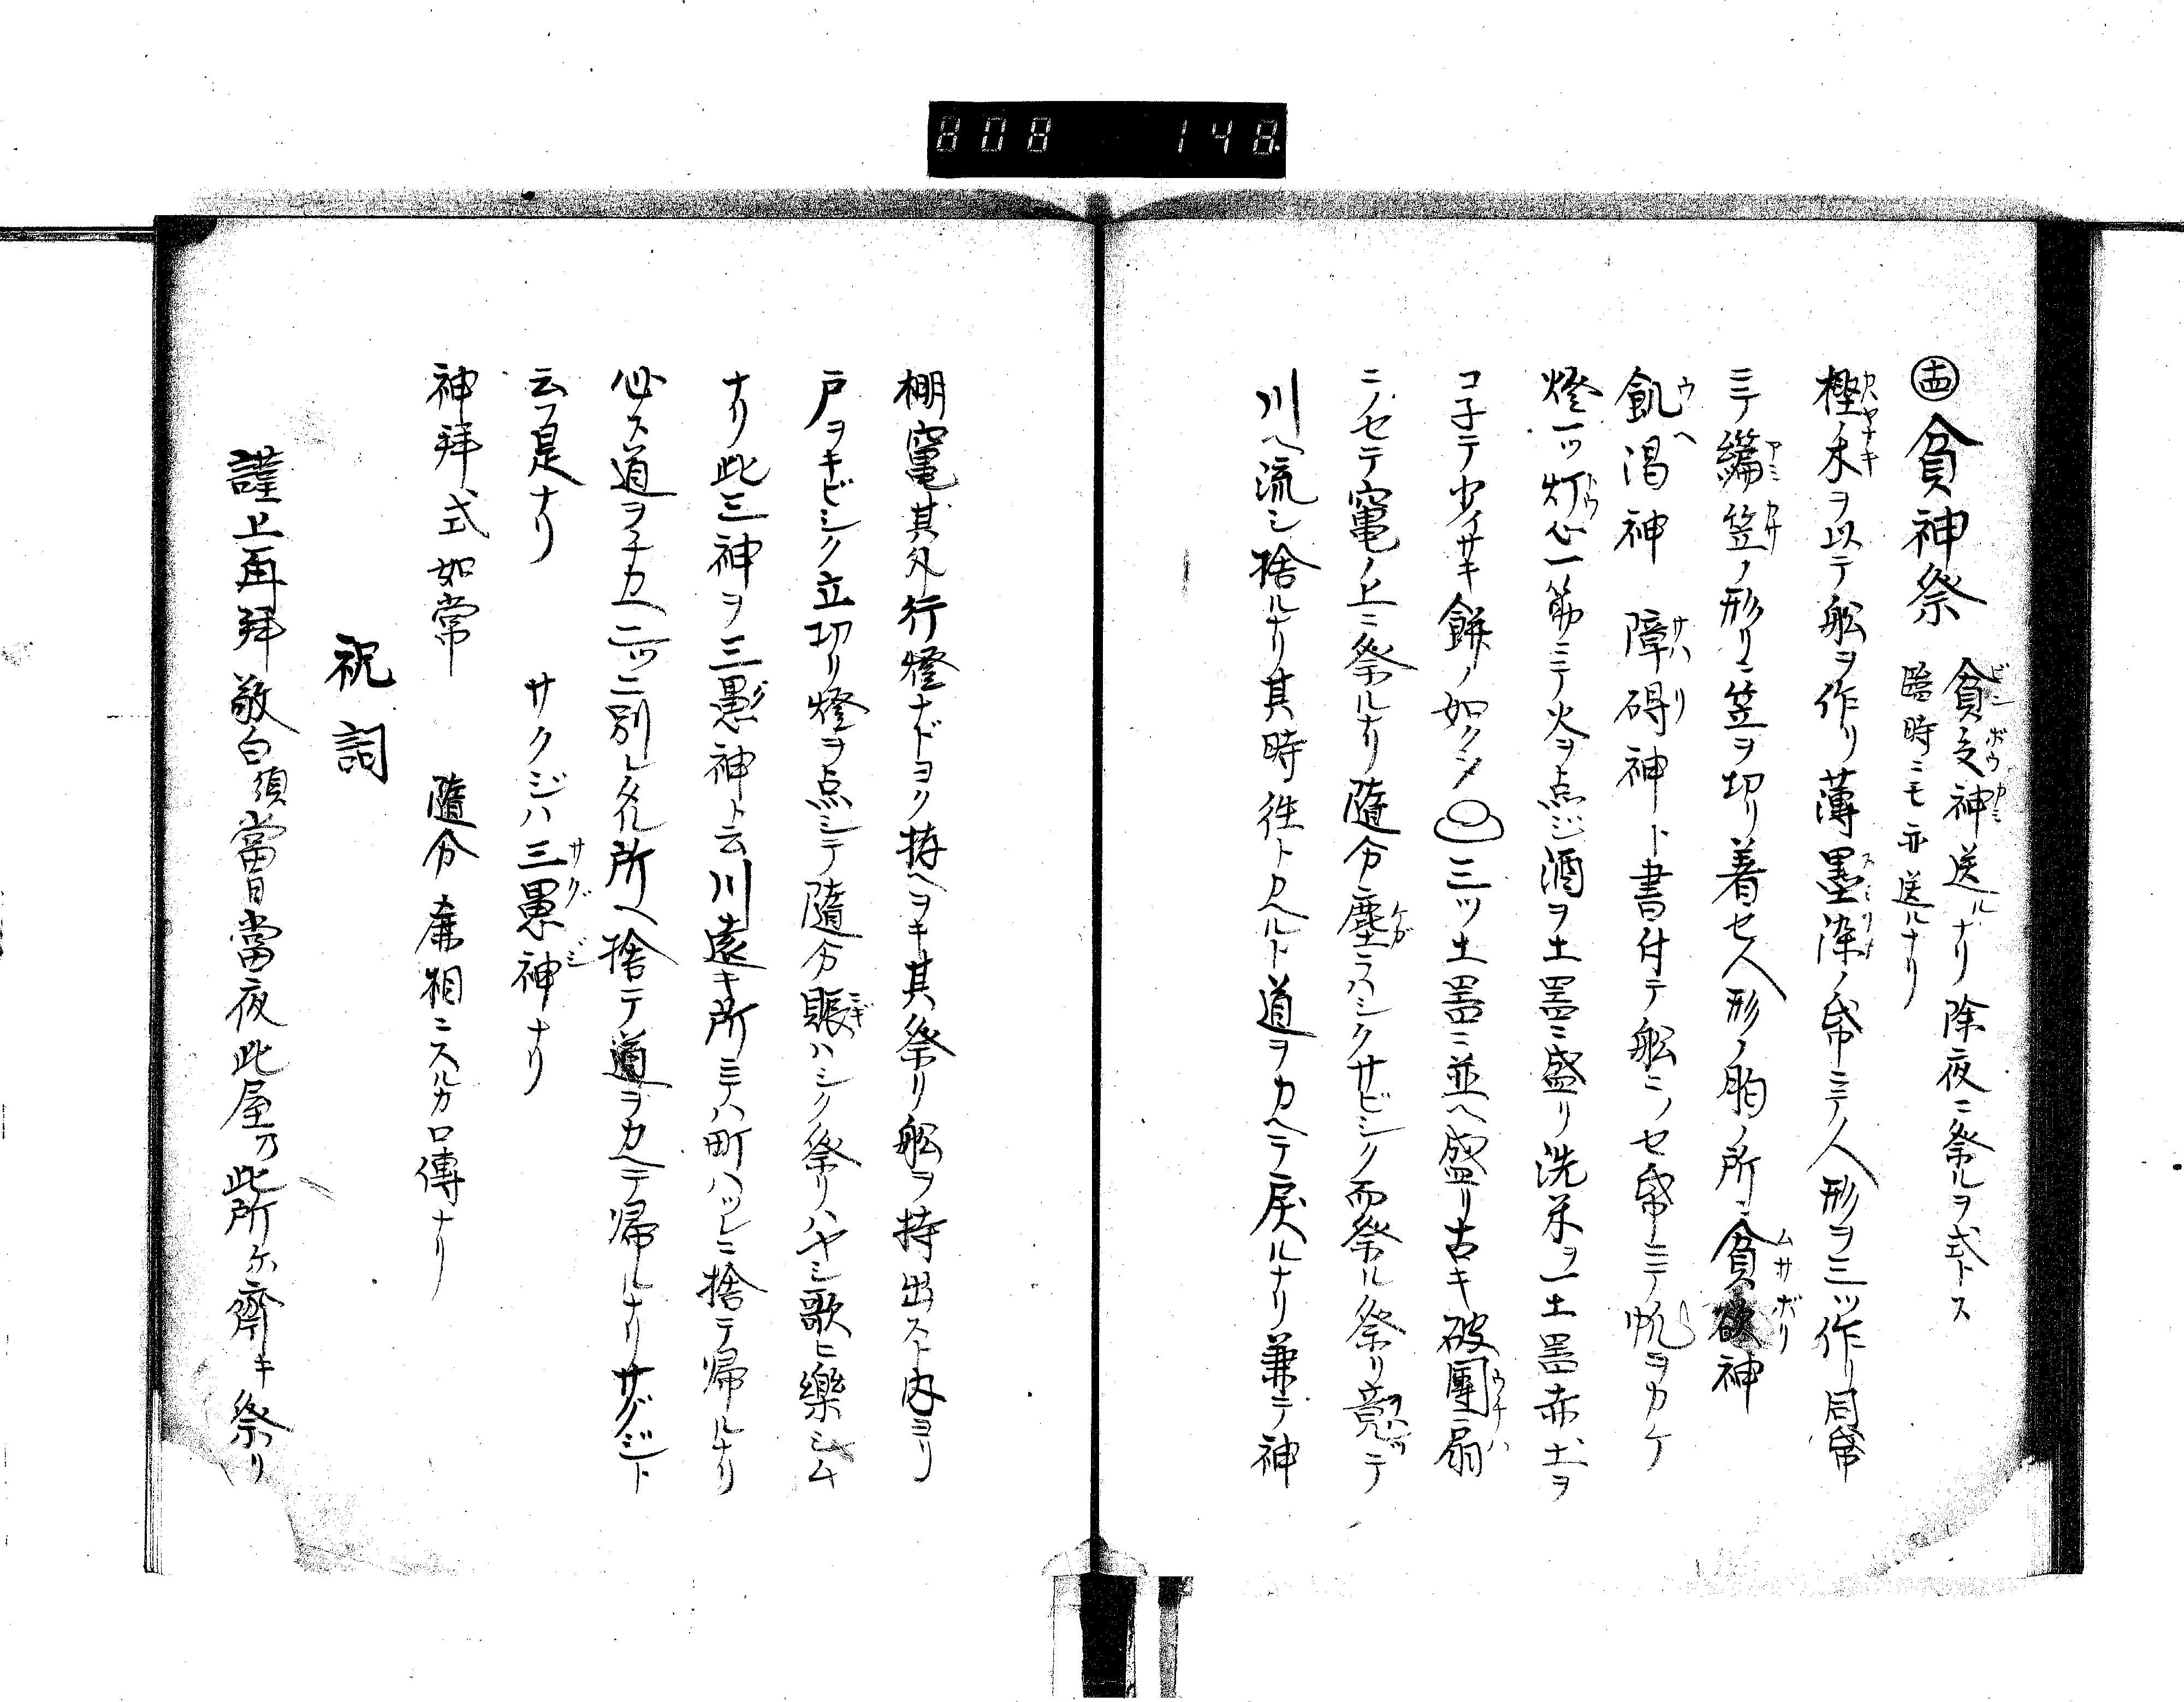 808 148
㊉四 貧神祭 貧乏神送ルナリ除夜ニ祭ルヲ式トス
臨時ニモ亦送ルナリ
樫木ヲ以テ舩ヲ作リ薄墨染ノ帋ニテ人形ヲ三ツ作リ同帋
ニテ編笠ノ形リニ笠ヲ切リ着セ人形ノ胸ノ所ニ貪欲神
飢渇神 障碍神ト書付テ舩ニノセ帋ニテ帆ヲカケ
燈一ツ灯心一筋ニテ火ヲ点ジ酒ヲ土器ニ盛リ洗米ヲ一土器赤土ヲ
コ子テ少イサキ餅ノ如クシ 三ツ土器ニ並ヘ盛リ古キ破團扇
ニノセテ竃ノ上ニ祭ルナリ隨分塵ラハシクサビシク而祭ル祭リ竟テ
川ヘ流シ捨ルナリ其時徃トカヘルト道ヲカヘテ戻ルナリ兼テ神
棚竃其外行燈ナドヨク拵ヘヲキ其祭リ舩ヲ持出スト内ヨリ
戸ヲキビシク立切リ燈ヲ点シテ隨分賑ハシク祭リハヤシ歌ヒ樂シム
ナリ此三神ヲ三愚神ト云川遠キ所ニテハ町ハツレニ捨テ帰ルナリ
必ス道ヲチカヘ二ツニ別レタル所ヘ捨テ道ヲカヘテ帰ルナリサグジト
云フ是ナリ サクジハ三愚神ナリ
神拜式如常 隨分麁相ニスルカ口傳ナリ
祝詞
謹上再拜敬白須當目當夜此屋乃此所尓齋キ祭リ